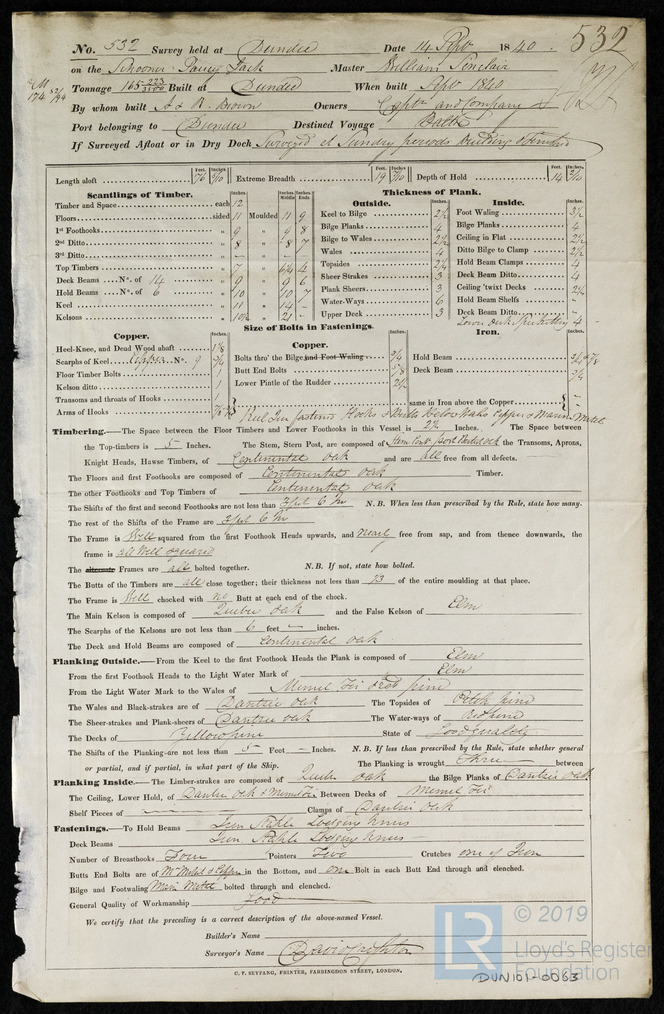 No. 532 Survey held at Dundee Date 14 Septr 1840. 532
on the Schooner Jack Master William Sinclair
Tonnage 165 223/3500 Built at Dundee When built Septr 1840
By whom built A & R. Brown Owners Captn and Company
Port belonging to Dundee Destined Voyage Baltic
If Surveyed Afloat or in Dry Dock Surveyed at Sundry periods building
Length aloft Feet. 76 Inches 8/10 Extreme Breadth Feet. 19 Inches Depth of Hold Feet. 14 Inches. 2/10
Scantlings of Timber.
Inches. Inches. Middle Inches. Ends
Timber and Space each 12
Floors sided 11 Moulded 11 9
1st Foothooks „ 9 „ 9 8
2nd Ditto „ 8 „ 8 7
3rd Ditto „ - „ - -
Top Timbers „ 7 „ 6 1/4 4
Deck Beams No. of 14 „ 9 „ 9 6
Hold Beams No. of 6 „ 10 „ 10 7
Keel „ 11 „ 14 -
Kelsons „ 10 1/2 „ 21 -
Thickness of Plank.
Outside. Inches.
Keel to Bilge 2 1/2
Bilge Planks 4
Bilge to Wales 2 1/2
Wales 4
Topsides 2 1/4
Sheer Strakes 3
Plank Sheers 3
Water-Ways 6
Upper Deck 3
Inside. Inches.
Foot Waling 3 1/2
Bilge Planks 4
Ceiling in Flat 2 1/2
Ditto Bilge to Clamp 2 1/2
Hold Beam Clamps 4
Deck Beam Ditto 4
Ceiling 'twixt Decks 2 1/4
Hold Beam Shelfs -
Deck Beam Ditto -
Lower Deck Spirketting 4
Size of Bolts in Fastenings.
Copper. Inches.
Heel-Knee, and Dead Wood abaft 1 1/8
Scarphs of Keel Copper No. 9 3/4
Floor Timber Bolts 1
Kelson ditto 1
Transoms and throats of Hooks 1
Arms of Hooks
Copper. Inches.
Bolts thro' the Bilge and Foot Waling 3/4
Butt End Bolts 5/8
Lower Pintle of the Rudder 2 1/2
Iron. Inches.
Hold Beam 3/4 & 7/8
Deck Beam 3/4
same in Iron above the Copper -
Hooks below Wales Copper & Marine Metal
Timbering.—The Space between the Floor Timbers and Lower Foothooks in this Vessel is 2 1/2 Inches. The Space between
the Top-timbers is 5 Inches. The Stem, Stern Post, are composed of the Transoms, Aprons,
Knight Heads, Hawse Timbers, of Continental oak and are all free from all defects.
The Floors and first Foothooks are composed of Continental oak Timber.
The other Foothooks and Top Timbers of Continental oak
The Shifts of the first and second Foothooks are not less than 3 feet 6 In N.B. When less than prescribed by the Rule, state how many.
The rest of the Shifts of the Frame are 3 feet 6 In
The Frame is Well squared from the first Foothook Heads upwards, and nearly free from sap, and from thence downwards, the
frame is all Well squared
The alternate Frames are all bolted together. N.B. If not, state how bolted.
The Butts of the Timbers are all close together; their thickness not less than 1/3 of the entire moulding at that place.
The Frame is Well chocked with no Butt at each end of the chock.
The Main Kelson is composed of Quebec oak and the False Kelson of Elm
The Scarphs of the Kelsons are not less than 6 feet — inches.
The Deck and Hold Beams are composed of Continental oak
Planking Outside.—From the Keel to the first Foothook Heads the Plank is composed of Elm
From the first Foothook Heads to the Light Water Mark of Elm
From the Light Water Mark to the Wales of Memel Fir & red pine
The Wales and Black-strakes are of Dantzic oak The Topsides of Pitch pine
The Sheer-strakes and Plank-sheers of Dantzic oak The Water-ways of Red pine
The Decks of Yellow pine State of Good quality
The Shifts of the Planking are not less than 5 Feet — Inches. N.B. If less than prescribed by the Rule, state whether general
or partial, and if partial, in what part of the Ship. The Planking is wrought Three between
Planking Inside.—The Limber-strakes are composed of Quebec oak the Bilge Planks of Dantzic oak
The Ceiling, Lower Hold, of Dantzic oak & Memel Fir Between Decks of Memel Fir
Shelf Pieces of — Clamps of Dantzic oak
Fastenings.—To Hold Beams Iron Staple Lodging Knees
Deck Beams Iron Staple Lodging Knees
Number of Breasthooks Four Pointers Two Crutches one of Iron
Butts End Bolts are of Mn Metal & Copper in the Bottom, and one Bolt in each Butt End through and clenched.
Bilge and Footwaling Marine Metal bolted through and clenched.
General Quality of Workmanship good
We certify that the preceding is a correct description of the above-named Vessel.
Builder's Name
Surveyor's Name David Crighton
C. F. SEYFANG, PRINTER, FARRINGDON STREET, LONDON.
LR © 2019
Lloyd's Register
Foundation
DUN101-0063